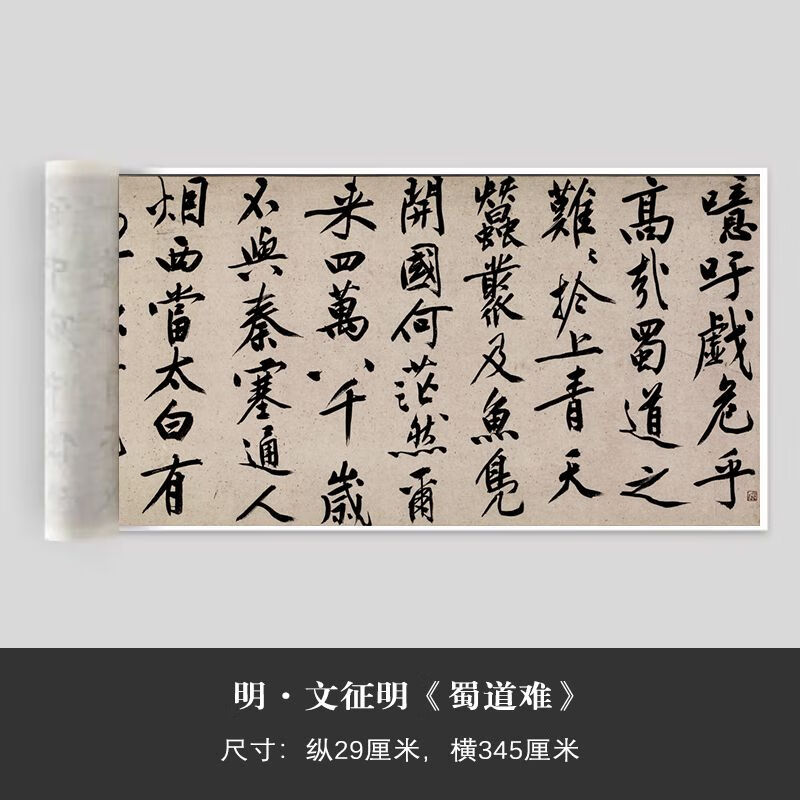 噫吁戲危乎
高哉蜀道之
難〻於上青天
蠶叢及魚鳧
開國何茫然爾
来四萬八千歲
不與秦塞通人
烟西當太白有
明·文征明《蜀道难》
尺寸：纵29厘米，横345厘米